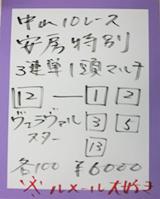 中山10レース
安房特別
3連単1頭マルチ
12 — 1 2
ヴェラヴァルスター 3 5
13
各100 ¥6000
メール大好き